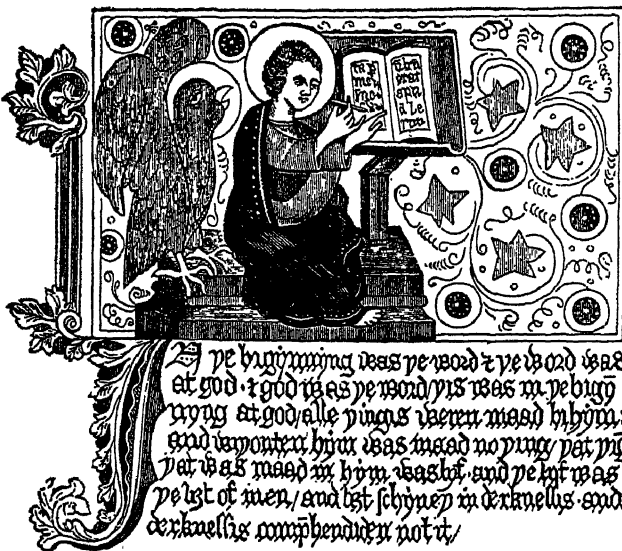 IN þe bigynnyng was þe word & þe word was
at god · & god was þe word/ þis was in þe bigyn̄
nyng at god/ alle þingis weren maad bi hym:
and wiþouten hym was maad no þing/ þat þīg
þat was maad in hym was lif · and þe lyf was
þe liȝt of men/ and liȝt schyneþ in derknessis · and
derknessis comp̄hendiden not it/